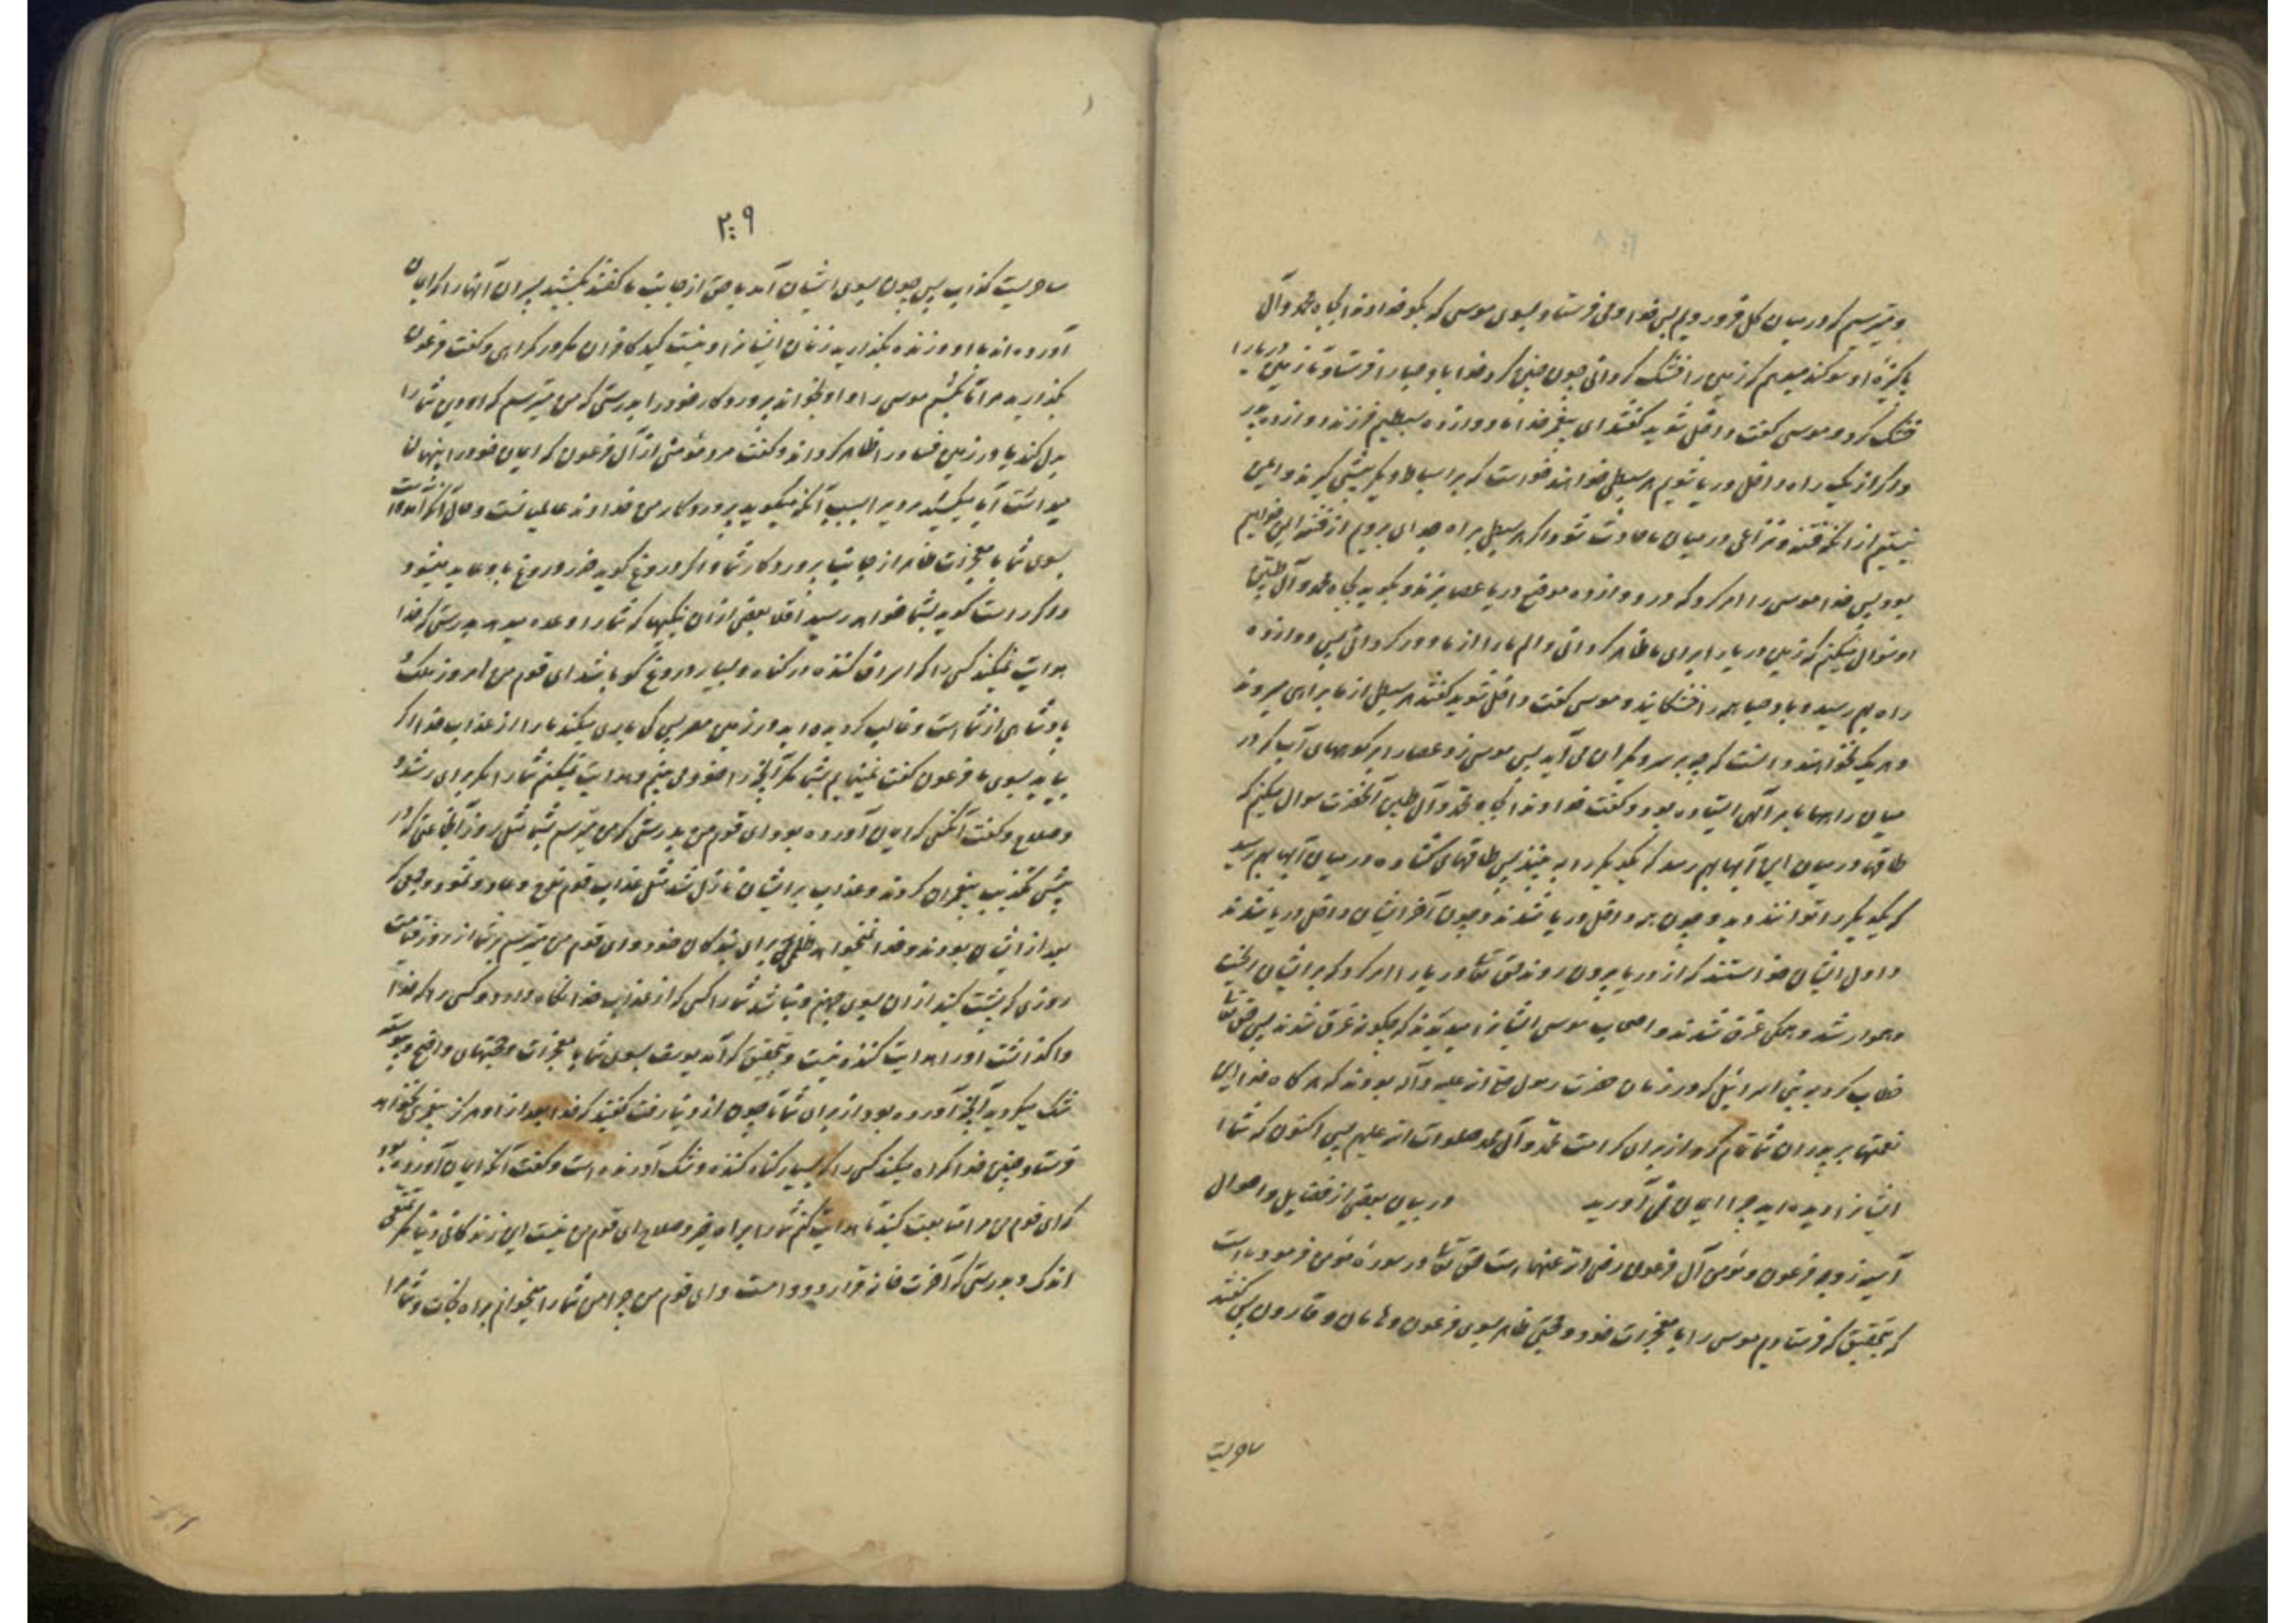 و میترسیم که در میان گل فرو رویم پس خدا وحی فرستاد بسوی موسی که بگو خداوندا بجاه محمد و آل
پاکیزهٔ او سوگند میدهم که زمین را خشک گردانی چون چنین کرد خدا باد صبا را فرستاد تا زمین دریا را
خشک کرد و موسی گفت داخل شوید گفتند ای پیغمبر خدا ما دوازده سبطیم فرزند دوازده پدر
و اگر از یک راه داخل دریا شویم هر سبطی خواهند خواست که بر اسباط دیگر پیشی گیرند و ایمن
نیستیم از آنکه فتنه و نزاعی در میان ما حادث شود و اگر هر سبطی براه جدای برویم از فتنه ایمن خواهیم
بود پس خدا موسی را امر کرد که در دوازده موضع دریا عصا بزند و بگوید بجاه محمد و آل طیبین
او سؤال میکنم که زمین دریا را برای ما ظاهر گردانی و الم ما را از ما دور گردانی پس دوازده
راه بهم رسید و باد صبا همه را خشکانید و موسی گفت داخل شوید گفتند هر سبطی از ما براهی میروند
و هر یک نخواهند دانست که چه بر سر دیگران می آید پس موسی زد عصا را بر کوههای آب که در
میان راهها بر آنها ایستاده بود و گفت خداوندا بجاه محمد و آل طیبین آنحضرت سوال میکنم که
طاقها در میان این آبها بهم رسد که یکدیگر را به بینند پس طاقهای گشاده در میان آبها بهم رسید
که یکدیگر را توانند دید و چون همه داخل دریا شدند و چون آخر ایشان داخل دریا شدند
و اول ایشان خواستند که از دریا بیرون روند حق تعالی دریا را امر کرد که بر ایشان ریخت
و هموار شد و همگی غرق شدند و اصحاب موسی ایشانرا میدیدند که چگونه غرق شدند پس حق تعالی
خطاب کرد به بنی اسرائیل که در زمان حضرت رسول صلی الله علیه و آله بودند که هر گاه خدا این
نعمتها بر پدران شما تمام کرد از برای کرامت محمد و آل محمد صلوات الله علیهم پس اکنون که شما
ایشانرا دیده اید چرا ایمان نمی آورید در بیان بعضی از فضایل و احوال
آسیه زوجه فرعون و مؤمن آل فرعون رضی الله عنهما است حق تعالی در سوره مؤمن فرموده است
که بتحقیق که فرستادیم موسی را با معجزات خود و حجتی ظاهر بسوی فرعون و هامان و قارون پس گفتند
ساحریست
۲۰۹
ساحریست کذاب پس چون بسوی ایشان آمد با حق از جانب ما گفتند بکشید پسران آنها را که ایمان
آورده اند با او و زنده بگذارید زنان ایشانرا و نیست کید کافران مگر در گمراهی و گفت فرعون
بگذارید مرا تا بکشم موسی را و او بخواند پروردگار خود را بدرستی که من میترسم که او دین شما را
بدل کند یا در زمین فساد را ظاهر گرداند و گفت مرد مؤمنی از آل فرعون که ایمان خود را پنهان
میداشت آیا میکشید مردیرا بسبب آنکه میگوید پروردگار من خداوند عالمیانست و حال آنکه آمده است
بسوی شما با معجزات ظاهر از جانب پروردگار شما و اگر دروغ گوید ضرر دروغ باو عاید میشود
و اگر راست گوید بشما خواهد رسید اقلا بعضی از آن چیزها که شما را وعده میدهد بدرستی که خدا
هدایت نمیکند کسی را که اسراف کننده در گناه و بسیار دروغ گو باشد ای قوم من امروز ملک و
پادشاهی از شما است و غالب گردیده اید در زمین مصر پس کی یاری میکند ما را از عذاب خدا اگر
بیاید بسوی ما فرعون گفت نمینمایم بشما مگر آنچه را خود می بینم و هدایت نمیکنم شما را مگر براه رشد و
و صلاح و گفت آنکس که ایمان آورده بود ای قوم من بدرستی که من میترسم بشما مثل روز آنجماعتی که در
پیش تکذیب پیغمبران کردند و عذاب بر ایشان نازل شد مثل عذاب قوم نوح و عاد و ثمود و جمعی که
بعد از ایشان بودند و خدا نمیخواهد ظلمی برای بندگان خود و ای قوم من میترسم بر شما از روز قیامت
روزی که پشت کنید از آن بسوی جهنم و نباشد شما را کسی که از عذاب خدا نگاه دارد و کسی را که خدا
واگذاشت او را هدایت کننده نیست و بتحقیق که آمد یوسف بسوی شما با معجزات و حجتهای واضح و پیوسته
شک میکردید آنچه آورده بود از برای شما تا چون از دنیا رفت گفتید که خدا بعد از او هرگز پیغمبری نخواهد
فرستاد چنین خدا گمراه میکند کسی را که بسیار گناه کننده و شک آورنده است و گفت آنکه ایمان آورده بود
که ای قوم من مرا متابعت کنید تا هدایت کنم شما را براه خیر و صلاح ای قوم من نیست این زندگانی دنیا مگر تمتعی
اندک و بدرستی که آخرت خانه قرار و دوام است و ای قوم من چرا من شما را میخوانم براه نجات و شما مرا